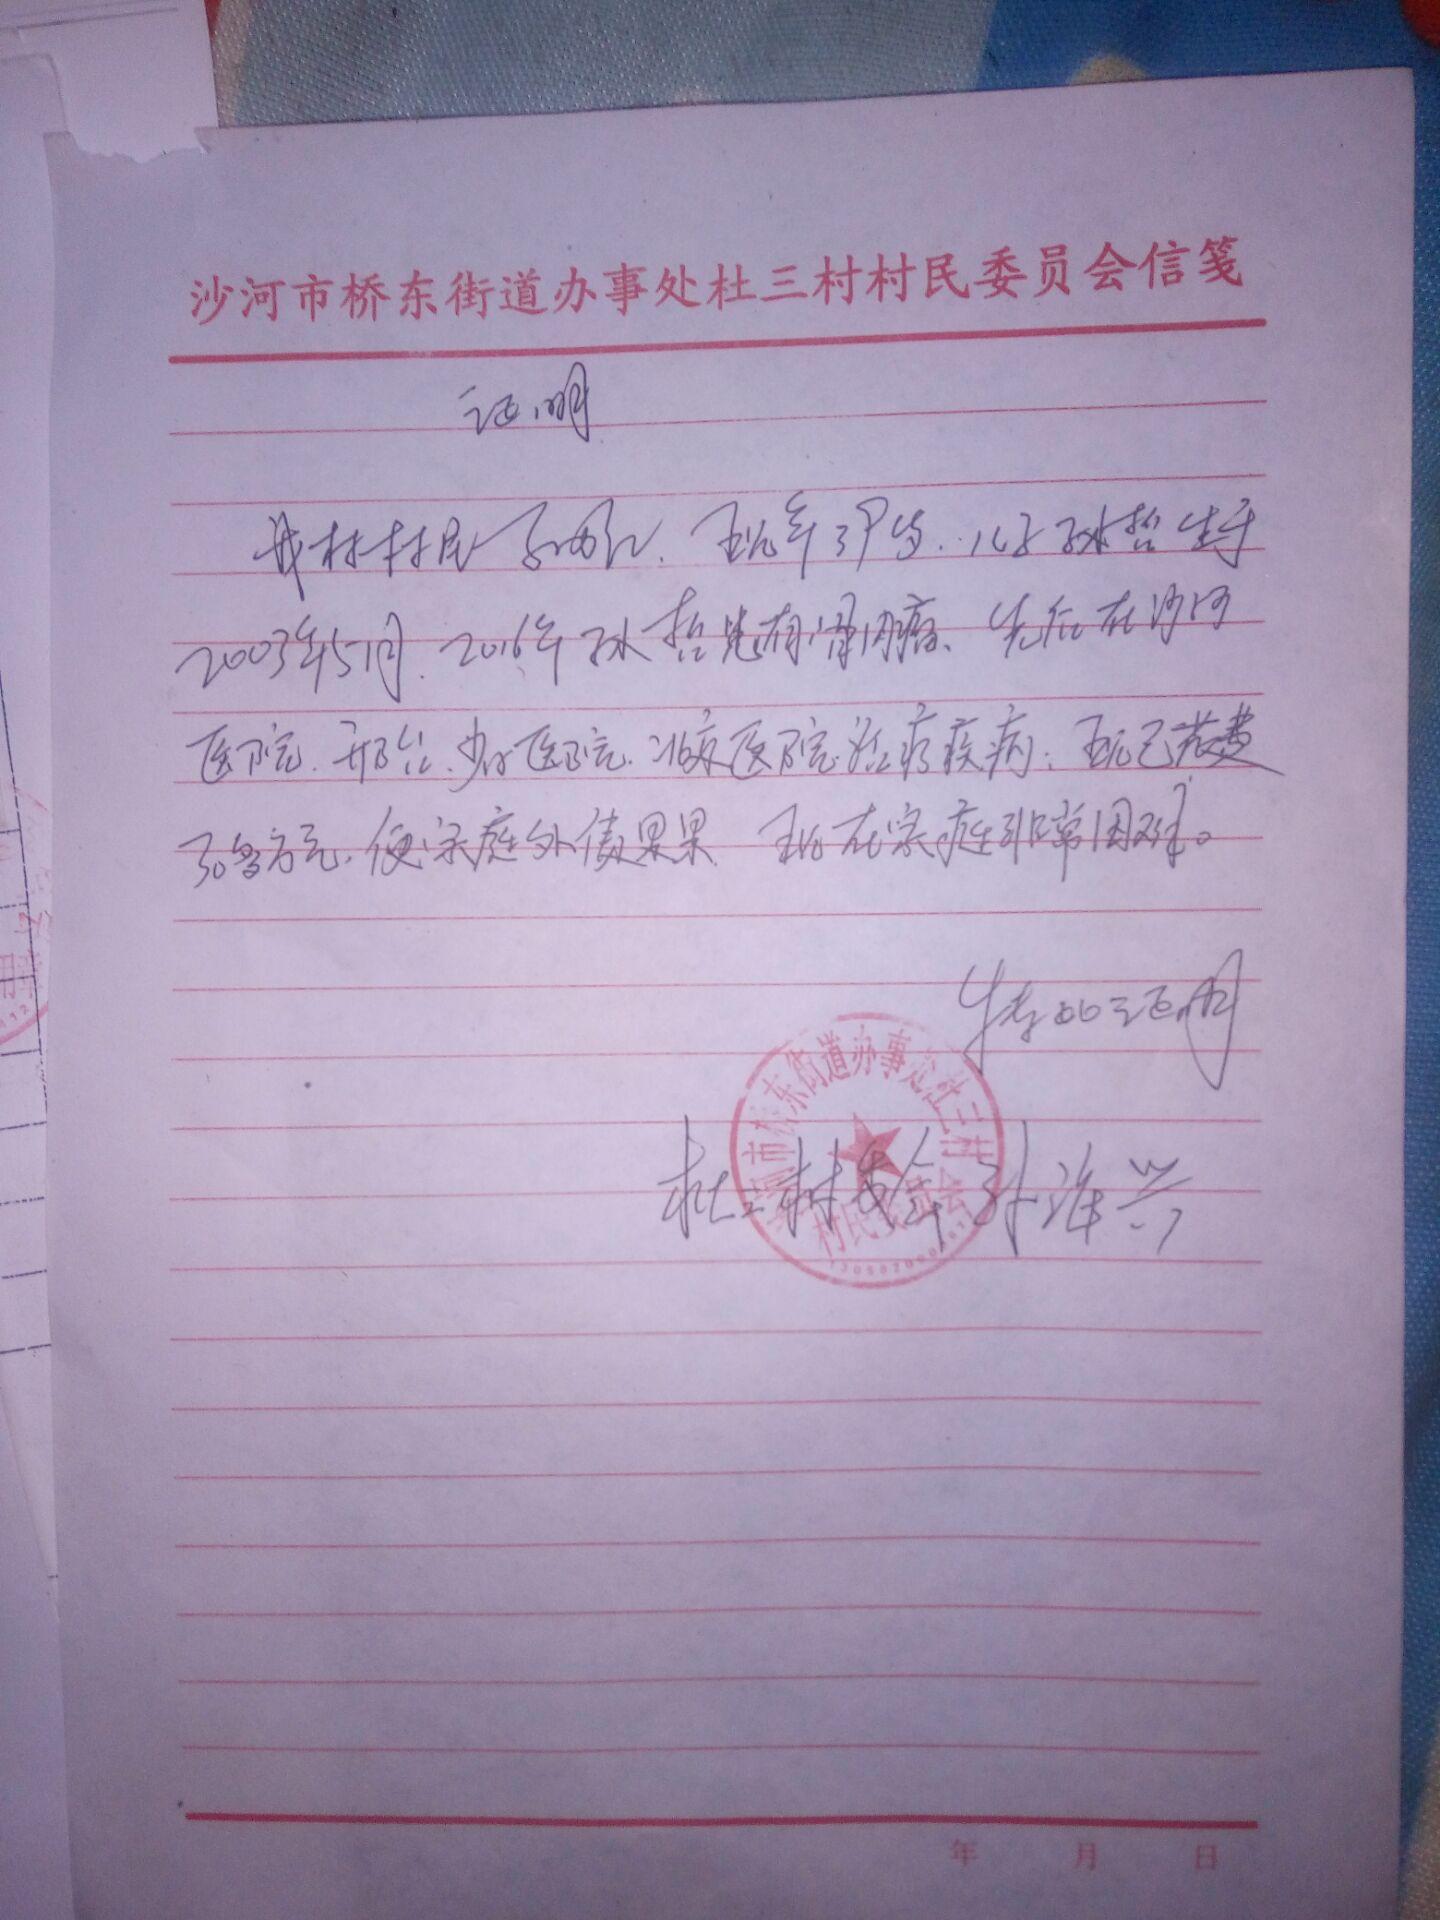 沙河市桥东街道办事处杜三村村民委员会信笺
证明
我村村民 现年39岁. 儿子孙哲生于
2003年5月. 2016年孙哲患有肾内病、先后在沙河
医院. 邢台. 医院. 北京医院治疗疾病. 现已花费
30多万元. 使家庭外债累累 现在家庭非常困难。
特此证明
杜三村委会 孙 兴
沙河市桥东街道办事处杜三村
村民委员会
年 月 日